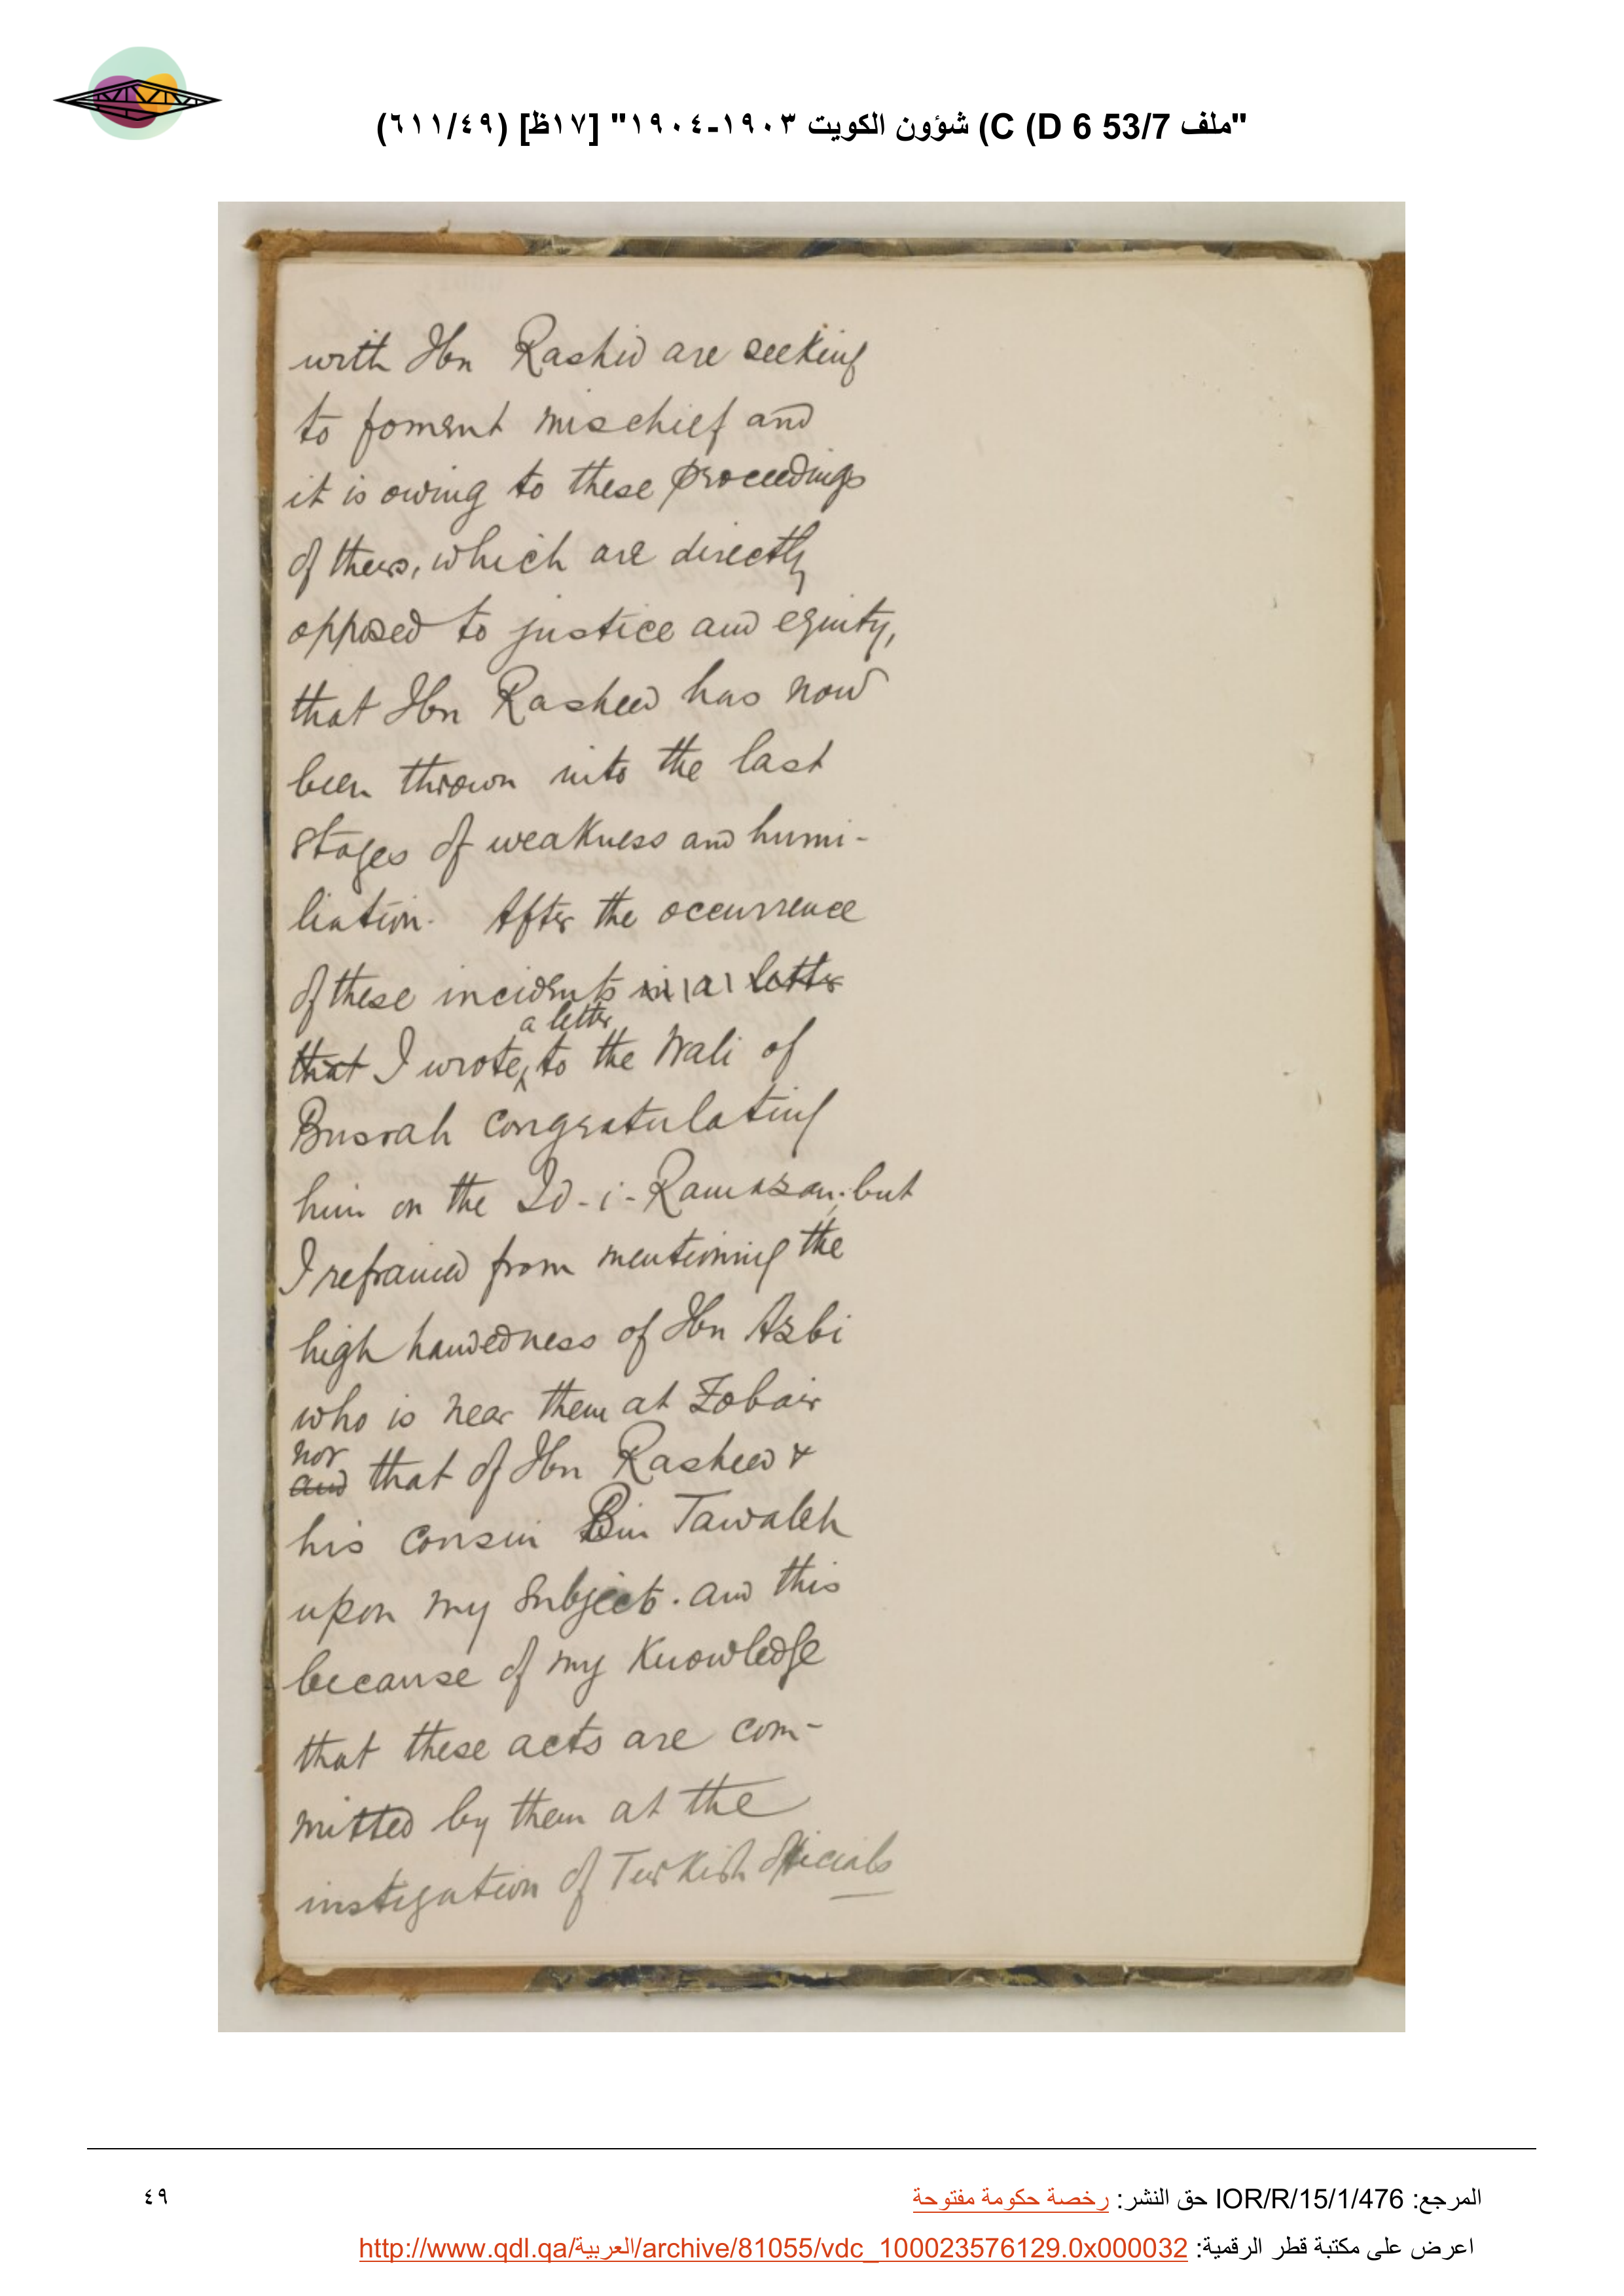 "ملف 53/7 D 6) C) شؤون الكويت ١٩٠٣-١٩٠٤" [١٧ظ] (٤٩/٦١١)
with Ibn Rashid are seeking
to foment mischief and
it is owing to these proceedings
of theirs, which are directly
opposed to justice and equity,
that Ibn Rasheed has now
been thrown into the last
stages of weakness and humi-
liation. After the occurrence
of these incidents in a letter
a letter
that I wrote to the Wali of
Busrah congratulating
him on the Id-i-Ramazan; but
I refrained from mentioning the
high handedness of Ibn Azbi
who is near them at Zobair
nor
and that of Ibn Rasheed &
his cousin Bin Tawaleh
upon my subjects. and this
because of my knowledge
that these acts are com-
mitted by them at the
instigation of Turkish officials
المرجع: IOR/R/15/1/476 حق النشر: رخصة حكومة مفتوحة
٤٩
اعرض على مكتبة قطر الرقمية: http://www.qdl.qa/العربية/archive/81055/vdc_100023576129.0x000032